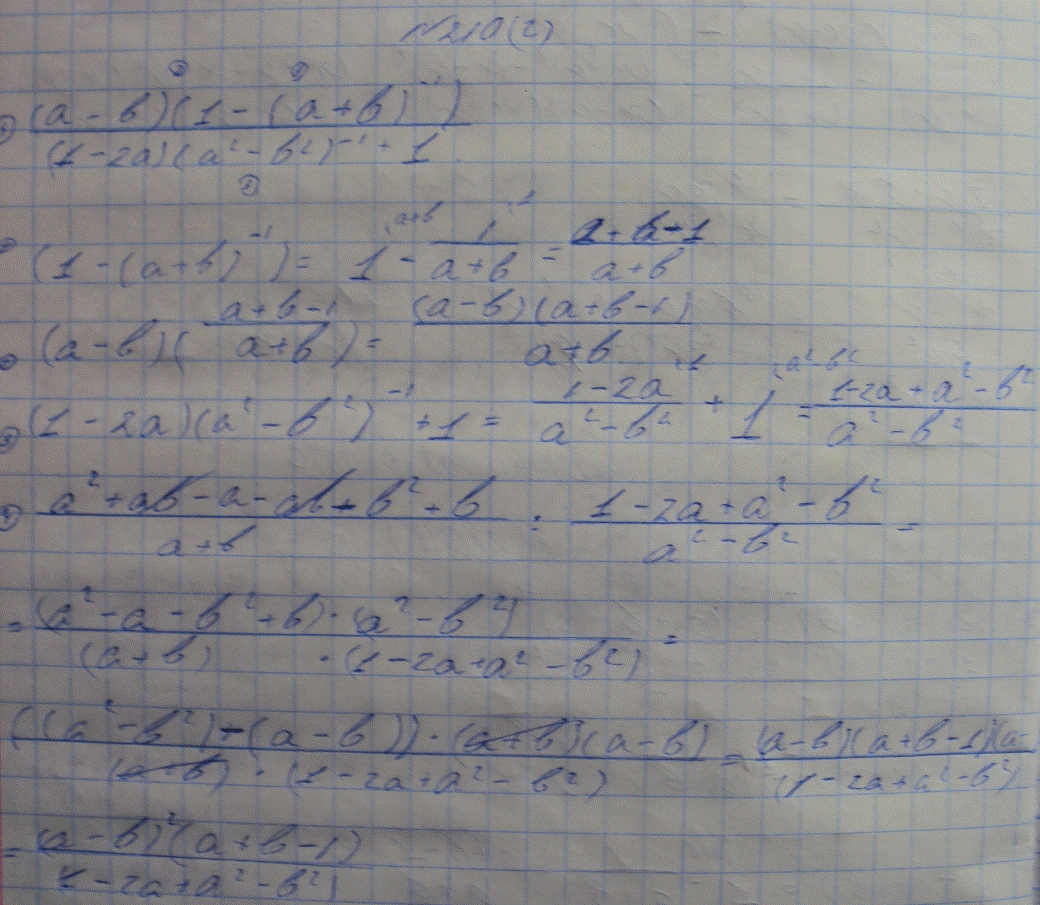 №210(2)
(a-b)(1-(a+b)⁻¹)
(1-2a)(a²-b²)⁻¹+1
(1-(a+b)⁻¹)= 1 - 1/(a+b) = (a+b-1)/(a+b)
(a-b)((a+b-1)/(a+b))= (a-b)(a+b-1)/(a+b)
(1-2a)(a²-b²)⁻¹+1= (1-2a)/(a²-b²) + 1 = (1-2a+a²-b²)/(a²-b²)
(a²+ab-a-ab-b²+b)/(a+b) : (1-2a+a²-b²)/(a²-b²) =
= (a²-a-b²+b)·(a²-b²)/((a+b)·(1-2a+a²-b²)) =
((a²-b²)-(a-b))·(a+b)(a-b)/((a+b)·(1-2a+a²-b²)) = (a-b)(a+b-1)(a-/(1-2a+a²-b²)
= (a-b)²(a+b-1)/(1-2a+a²-b²)